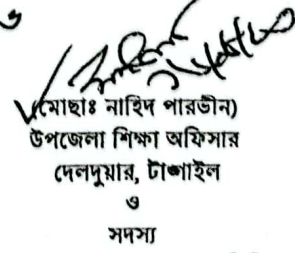 ও
(মোছাঃ নাহিদ পারভীন)
উপজেলা শিক্ষা অফিসার
দেলদুয়ার, টাঙ্গাইল
ও
সদস্য